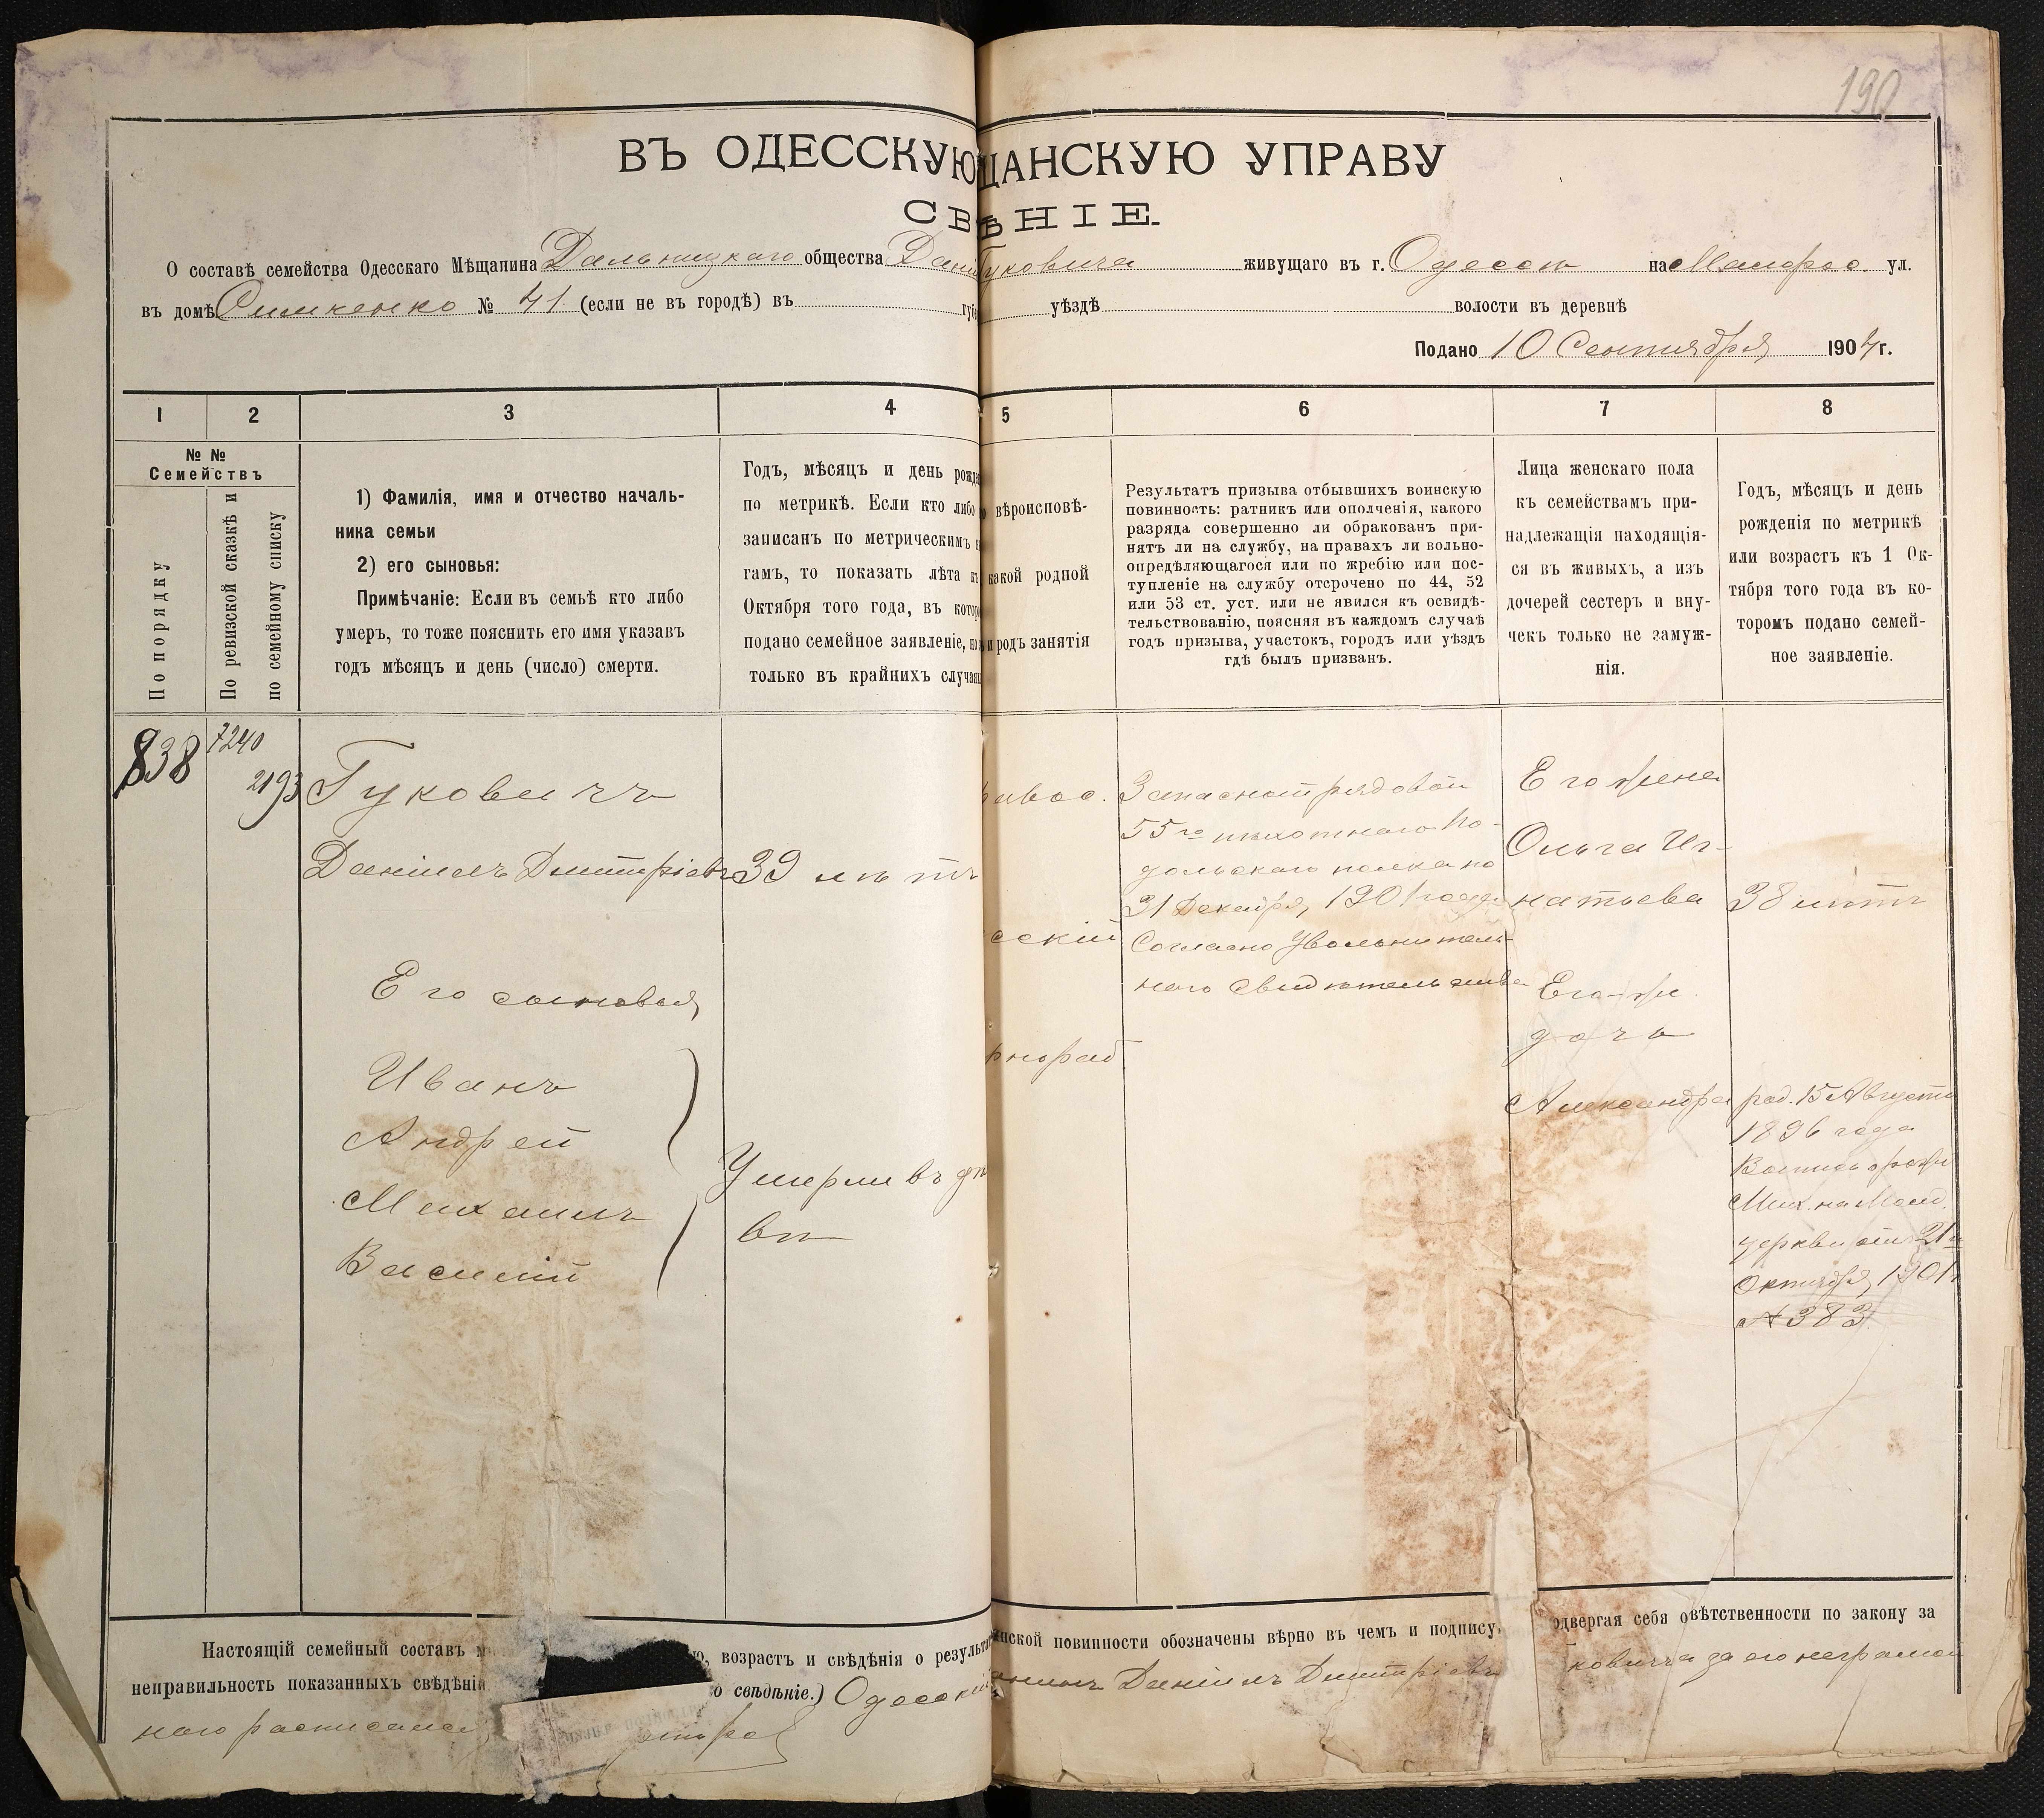 190
ВЪ ОДЕССКУЮ ЩАНСКУЮ УПРАВУ
СВ ѢНІЕ.
О составѣ семейства Одесскаго Мѣщанина Дальницкаго общества Дани Гуковича живущаго въ г. Одессѣ на Малорос. ул.
въ домѣ Симкенко № 41 (если не въ городѣ) въ губе уѣздѣ волости въ деревнѣ
Подано 10 Сентября 1904 г.
1 2 3 4 5 6 7 8
№ №
Семействъ
По порядку
По ревизской сказкѣ и
по семейному списку
1) Фамилія, имя и отчество началь-
ника семьи
2) его сыновья:
Примѣчаніе: Если въ семьѣ кто либо
умеръ, то тоже пояснить его имя указавъ
годъ мѣсяцъ и день (число) смерти.
Годъ, мѣсяцъ и день рожде
по метрикѣ. Если кто либо
записанъ по метрическимъ к
гамъ, то показать лѣта къ
Октября того года, въ котор
подано семейное заявленіе, но
только въ крайнихъ случая
вѣроисповѣ-
какой родной
и родъ занятія
Результатъ призыва отбывшихъ воинскую
повинность: ратникъ или ополченія, какого
разряда совершенно ли обракованъ при-
нятъ ли на службу, на правахъ ли вольно-
опредѣляющагося или по жребію или пос-
тупленіе на службу отсрочено по 44, 52
или 53 ст. уст. или не явился къ освидѣ-
тельствованію, поясняя въ каждомъ случаѣ
годъ призыва, участокъ, городъ или уѣздъ
гдѣ былъ призванъ.
Лица женскаго пола
къ семействамъ при-
надлежащія находящія-
ся въ живыхъ, а изъ
дочерей сестеръ и вну-
чекъ только не замуж-
нія.
Годъ, мѣсяцъ и день
рожденія по метрикѣ
или возрастъ къ 1 Ок-
тября того года въ ко-
торомъ подано семей-
ное заявленіе.
838
7240
2193
Гуковичъ
Даніилъ Дмитріевъ
Его сыновья
Иванъ
Андрей
Михаилъ
Василій
39 лѣтъ
Умерли въ дѣ
вѣ
авос.
сскій
нораб
Запасной рядовой
55го пѣхотнаго По-
дольскаго полка по
31 Декабря, 1901 года
Согласно Увольнитель-
наго свидѣтельства
Его жена
Ольга Иг-
натьева
Его же
дочь
Александра
38 лѣтъ
род. 15 Августа
1896 года
Выпись о рожд
Мих. на Молд.
церкви отъ 21го
Октября, 1901г
№ 383
Настоящій семейный составъ м о, возрастъ и свѣдѣнія о результат нской повинности обозначены вѣрно въ чемъ и подпису одвергая себя овѣтственности по закону за
неправильность показанныхъ свѣдѣні о свѣдѣніе.) Одесскій анинъ Даніилъ Дмитріевъ ковичъ а за его неграмот
наго росписался